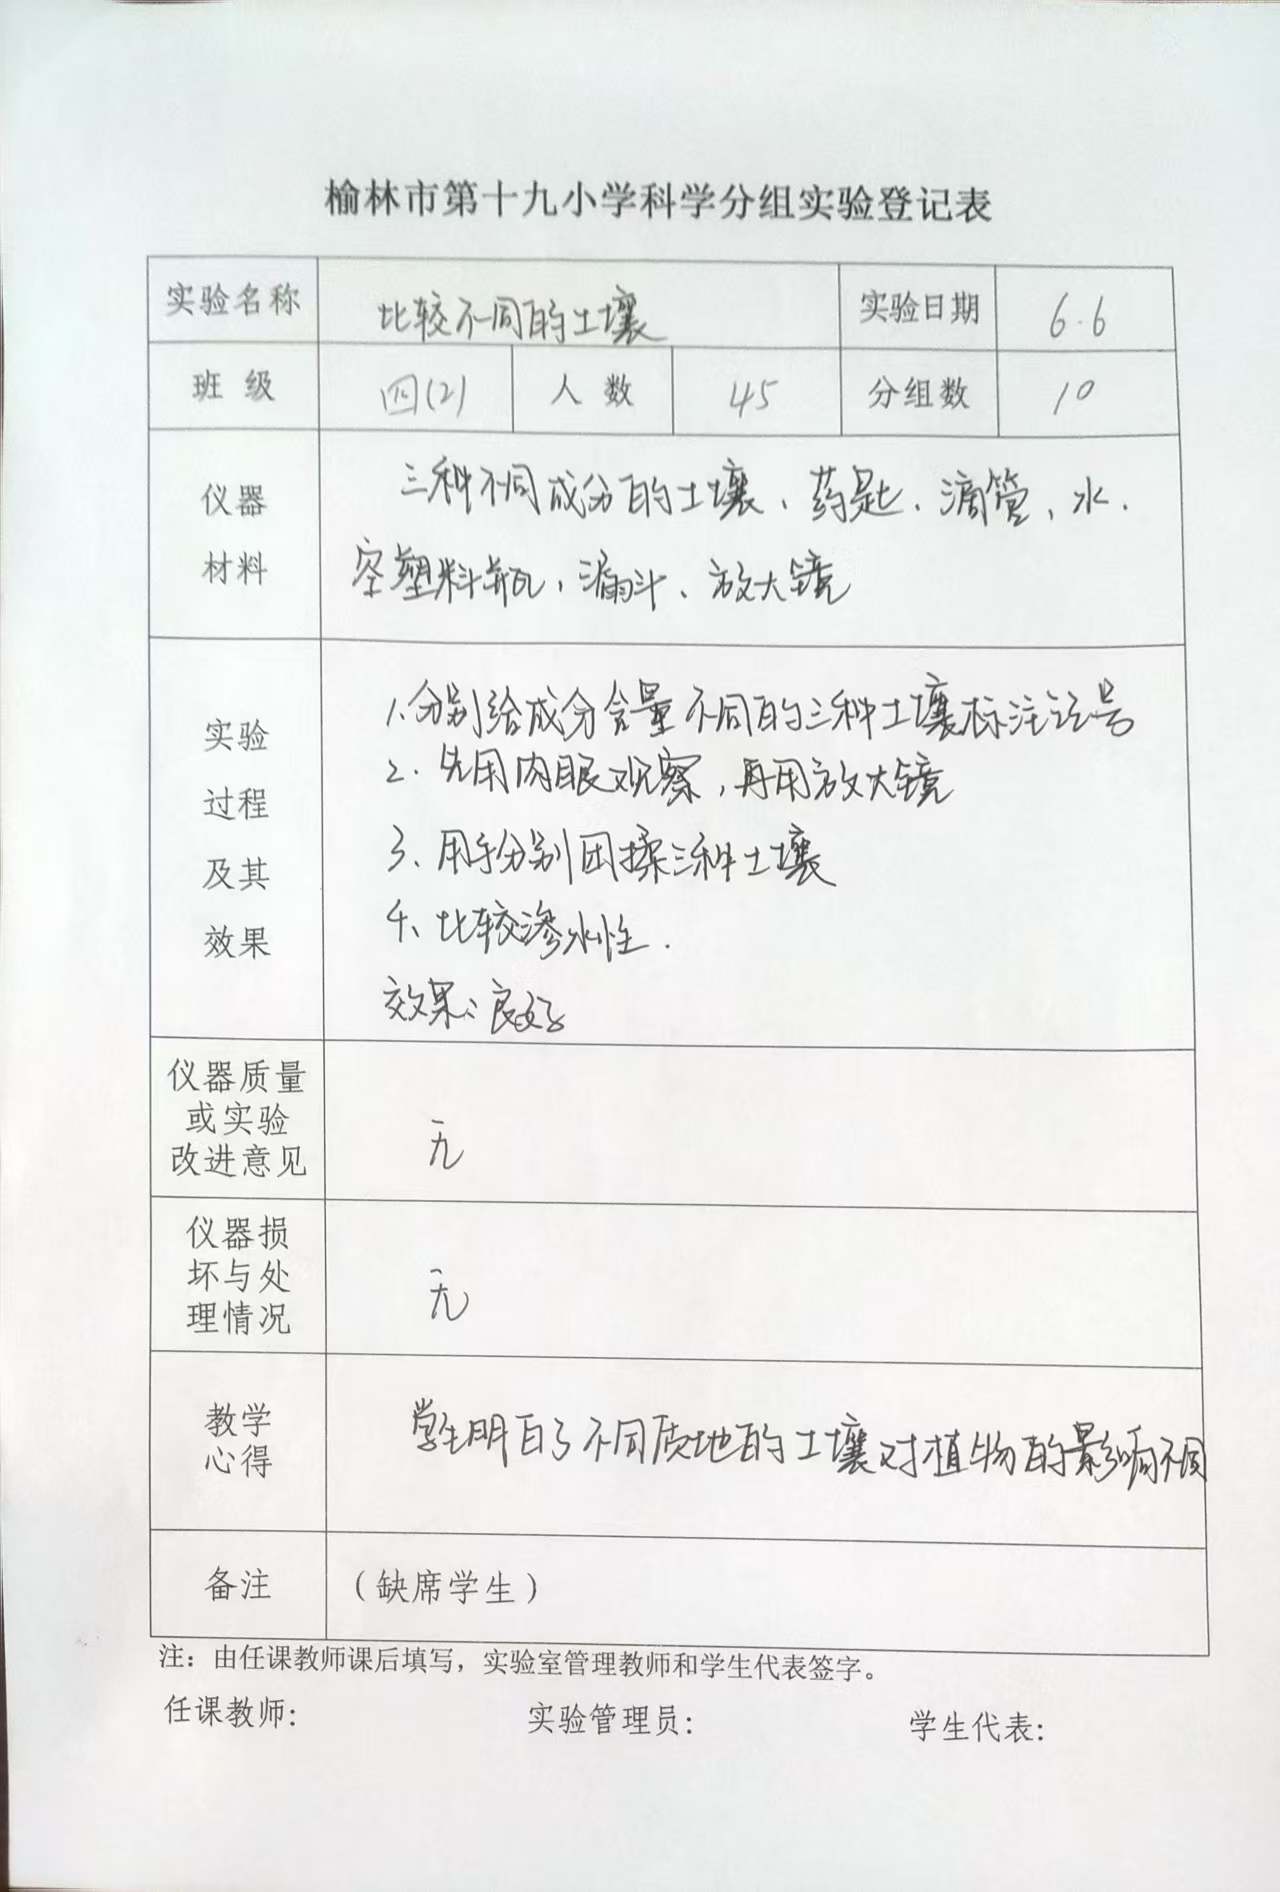 榆林市第十九小学科学分组实验登记表
实验名称 比较不同的土壤 实验日期 6.6
班 级 四(2) 人 数 45 分组数 10
仪器
材料
三种不同成分的土壤、药匙、滴管、水、
空塑料瓶、漏斗、放大镜
实验
过程
及其
效果
1.分别给成分含量不同的三种土壤标注记号
2.先用肉眼观察,再用放大镜
3、用手分别团揉三种土壤
4、比较渗水性.
效果:良好
仪器质量
或实验
改进意见
无
仪器损
坏与处
理情况
无
教学
心得
学生明白了不同质地的土壤对植物的影响不同
备注 (缺席学生)
注：由任课教师课后填写，实验室管理教师和学生代表签字。
任课教师: 实验管理员: 学生代表: